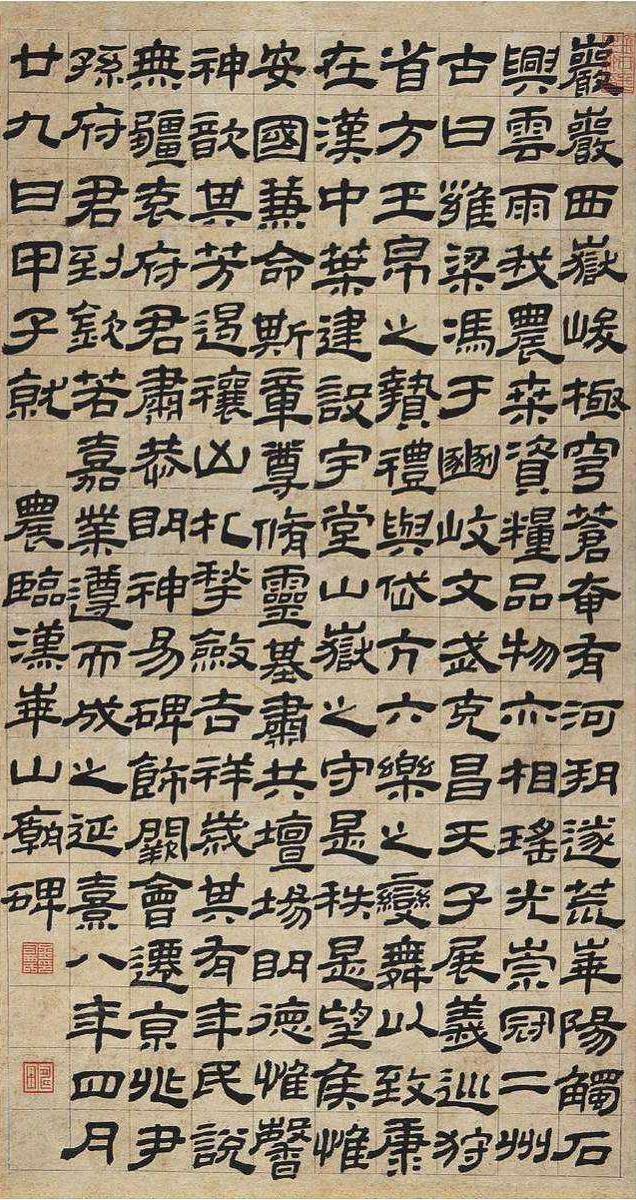 巖巖西嶽峻極穹蒼奄有河朔遂荒華陽觸石
興雲雨我農桒資糧品物亦相瑤光崇冠二州
古曰雍梁馮于豳岐文武克昌天子展義巡狩
省方玉帛之贄禮與岱亢六樂之變舞以致康
在漢中葉建設宇堂山嶽之守是秩是望侯惟
安國兼命斯章尊脩靈基肅共壇場明德惟馨
神歆其芳遏禳凶札揫斂吉祥歲其有年民說
無疆袁府君肅恭明神易碑飾闕會遷京兆尹
孫府君到欽若嘉業遵而成之延熹八年四月
廿九日甲子就 農臨漢華山廟碑